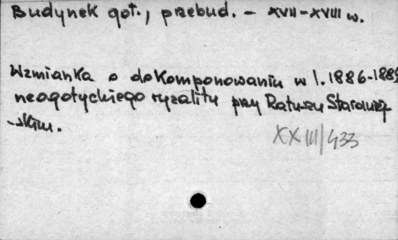 Budynek got., przebud. - XVII-XVIII w.
Wzmianka o dokomponowaniu w l. 1886-188
neogotyckiego ryzalitu przy Ratuszu Staromiej
-skim.
XXIII/433